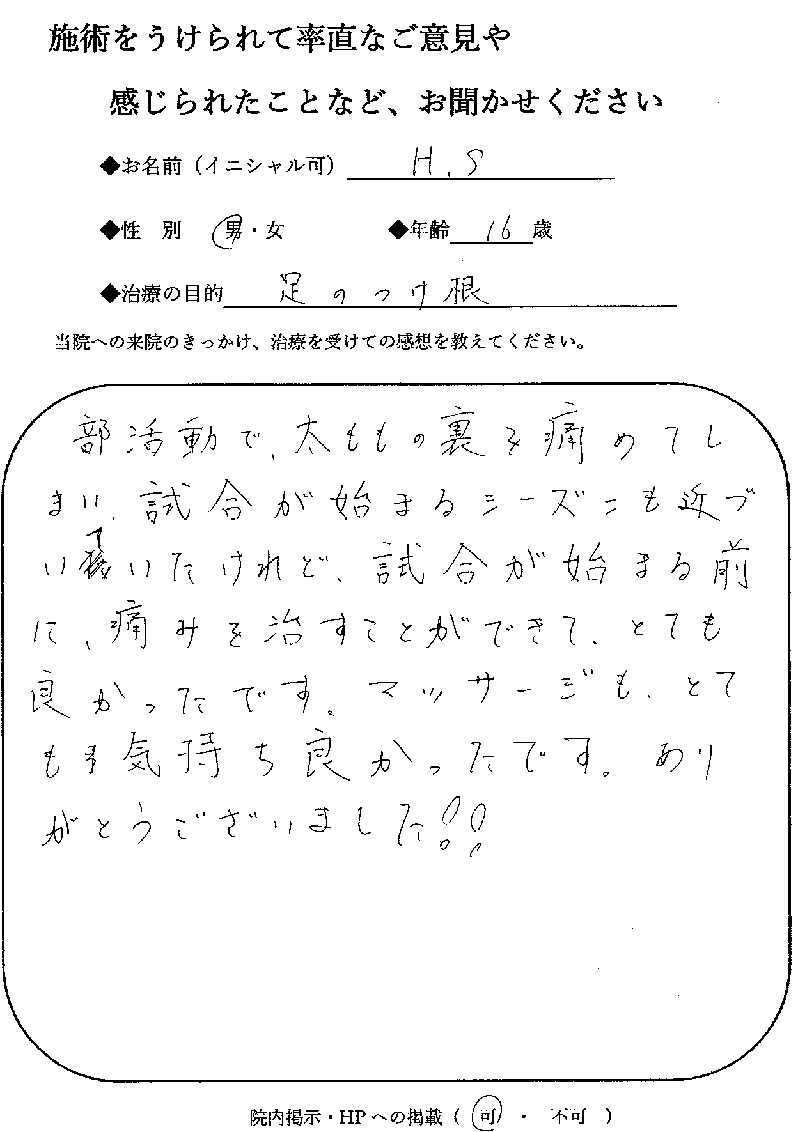 施術をうけられて率直なご意見や
感じられたことなど、お聞かせください
◆お名前（イニシャル可） H.S
◆性　別　男・女　◆年齢 16 歳
◆治療の目的 足のつけ根
当院への来院のきっかけ、治療を受けての感想を教えてください。
部活動で、太ももの裏を痛めてし
まい、試合が始まるシーズンも近づ
いていたけれど、試合が始まる前
に、痛みを治すことができて、とても
良かったです。マッサージも、とて
も気持ち良かったです。あり
がとうございました!!
院内掲示・HPへの掲載（ 可 ・ 不可 ）